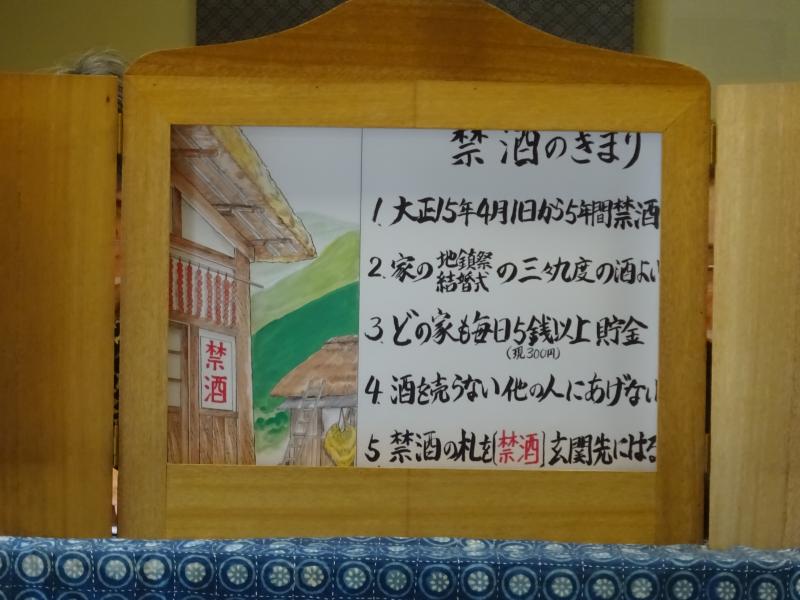 禁酒のきまり
1. 大正15年4月1日から5年間禁酒
2. 家の地鎮祭結婚式の三々九度の酒よい
3. どの家も毎日5銭以上貯金
(現300円)
4. 酒を売らない他の人にあげない
5. 禁酒の札を[禁酒]玄関先にはる
禁酒